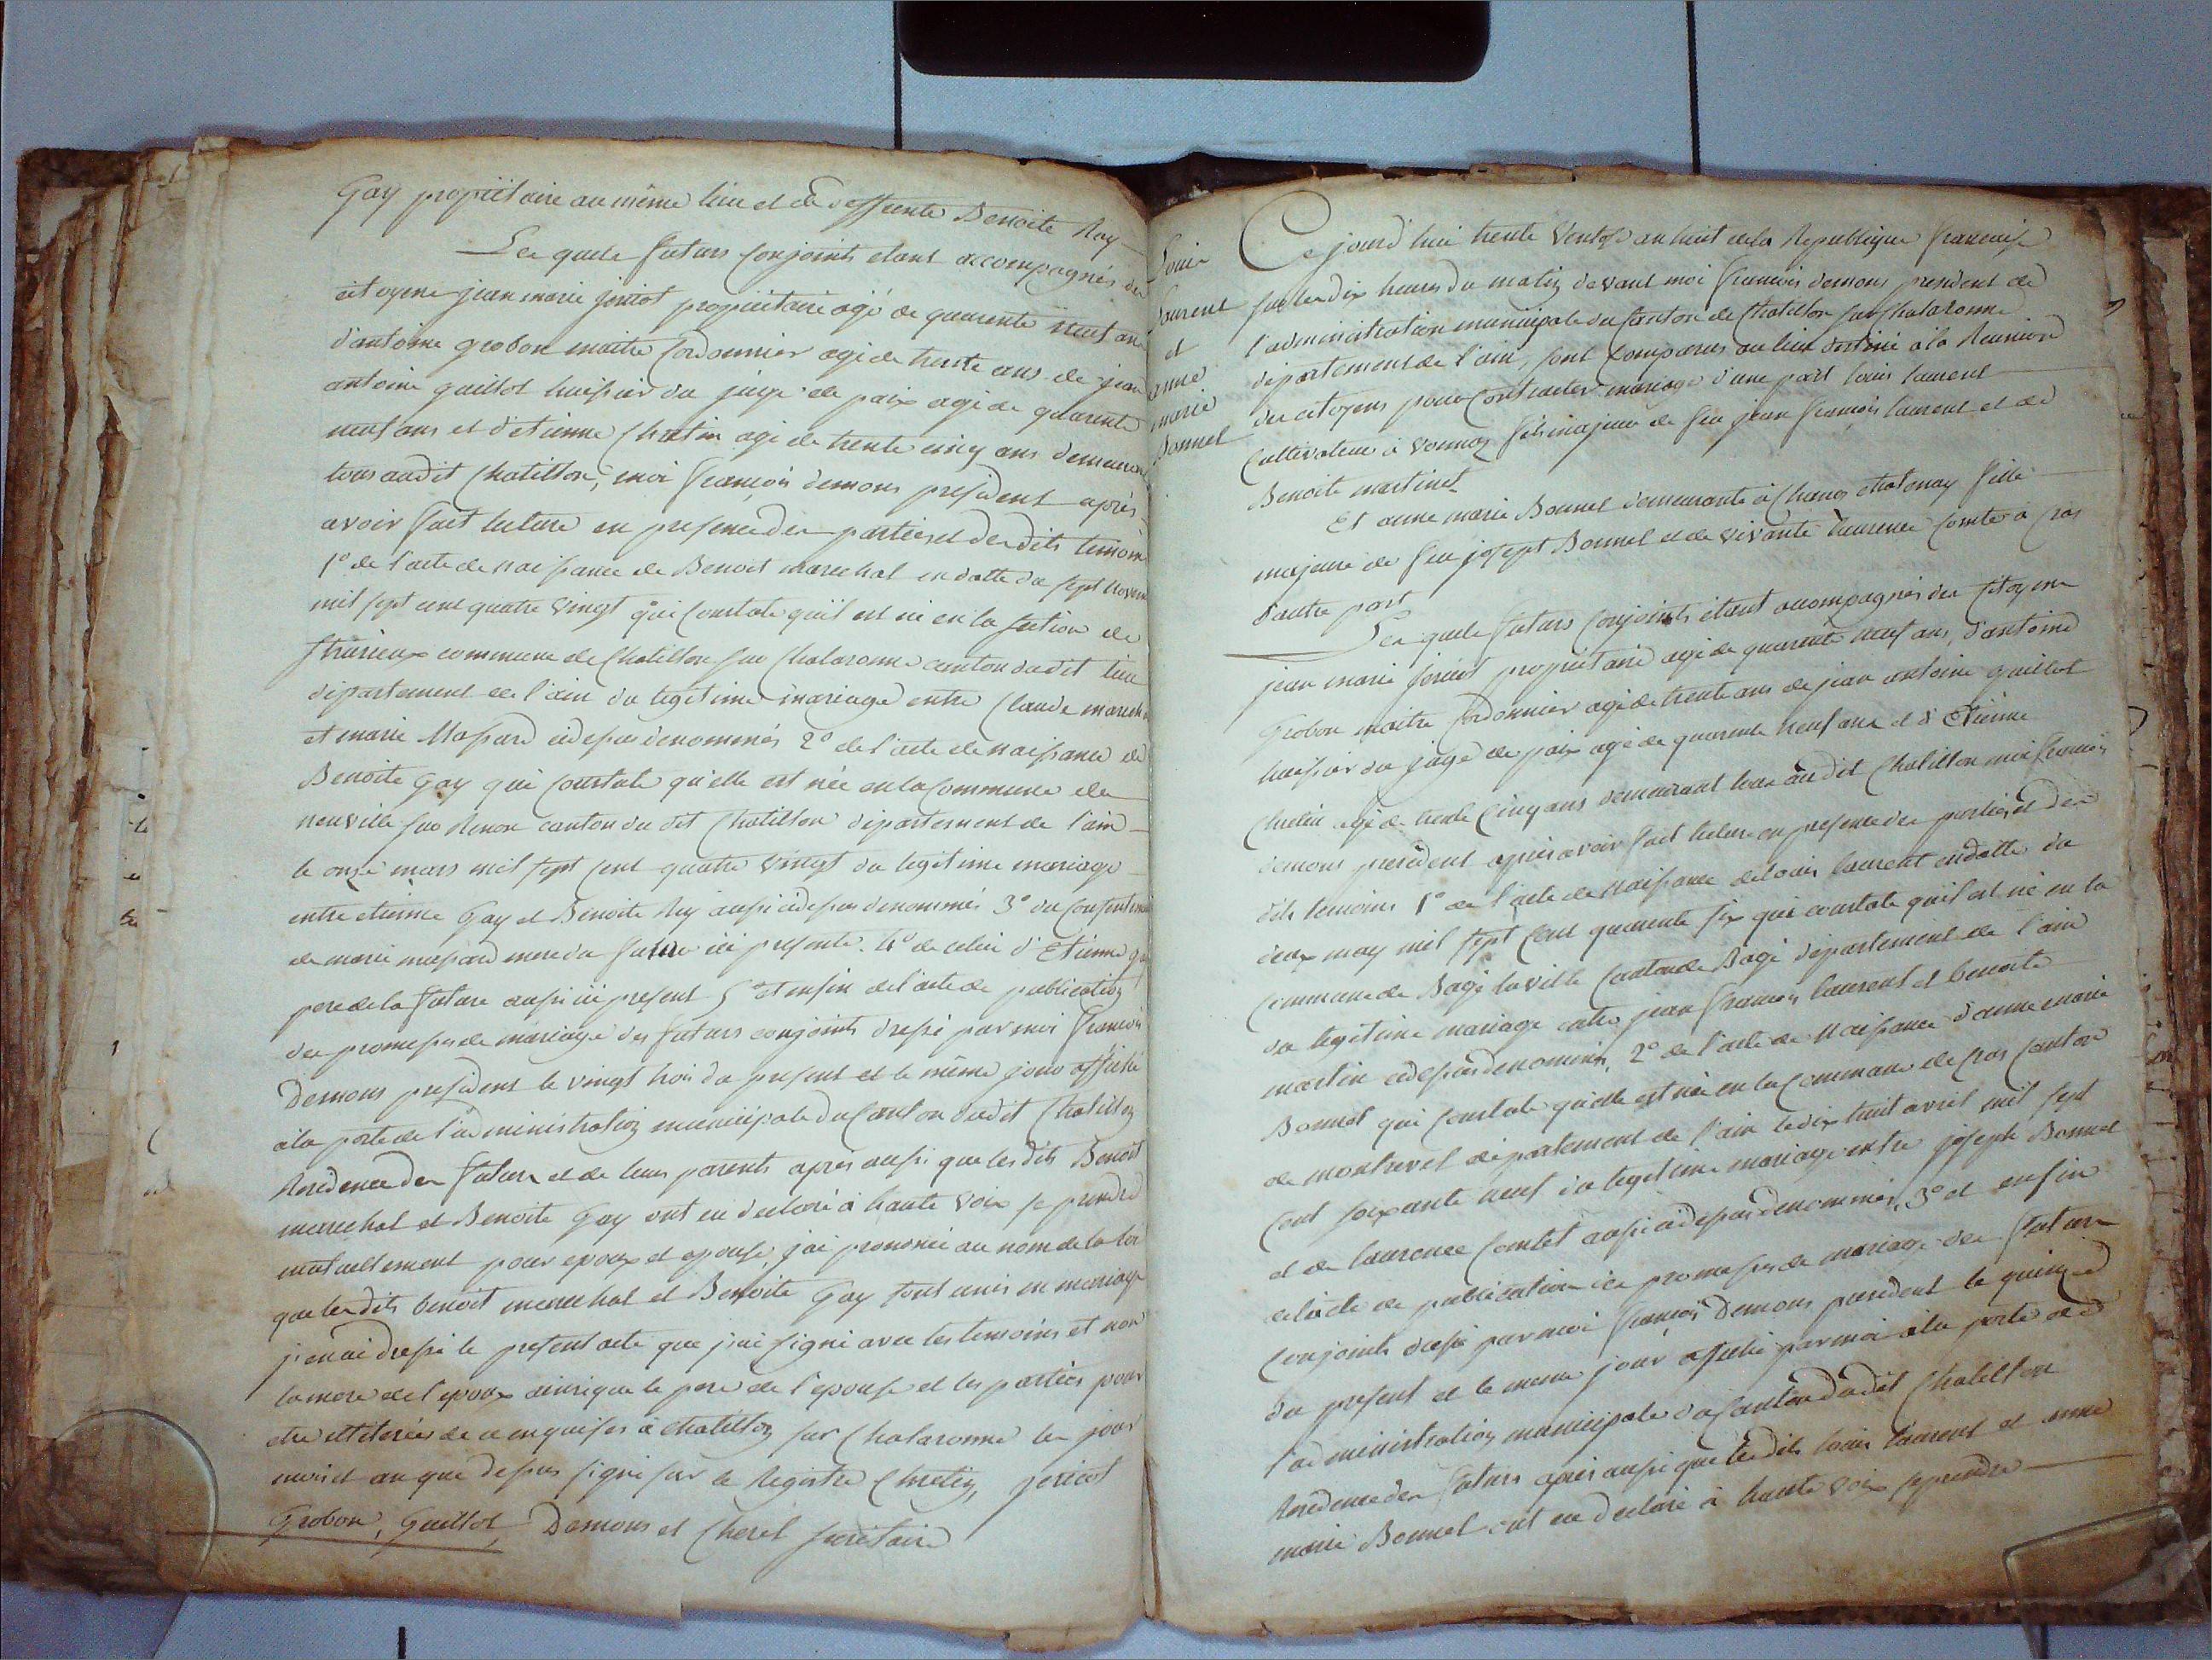 Gay propriétaire au même lieu et de deffunte Benoite Ray
Les quels futurs Conjoints étant accompagnés des
citoyens jean marie foriot propriétaire agé de quarente neuf ans
d'antoine grobon maitre Cordonnier agé de trente ans de jean
antoine guillot huissier du juge de paix agé de quarente
neuf ans et d'etienne Chretin agé de trente cinq ans demeurant
tous audit Chatillon, moi françois demons president après
avoir fait lecture en presence des parties et des dits temoins
1º de l'acte de naissance de Benoit marechal en datte du sept novem
mil sept cent quatre vingt qui Constate qu'il est né en la section de
commune de Chatillon sur Chalaronne canton dudit lieu
département de l'ain du legitime mariage entre Claude marechal
et marie Massard cidessus denommés 2º de l'acte de naissance de
Benoite Gay qui Constate qu'elle est née en la Commune de
neuville sur Renon canton du dit Chatillon département de l'ain
le onze mars mil sept cent quatre vingt du legitime mariage
entre etienne Gay et Benoite Rey aussi cidessus denommés 3º du Consentement
de marie massard mere du futur ici presente. 4º de celui d'Etienne gay
pere de la future aussi ici present 5º et enfin de l'acte de publication
des promesses de mariage des futurs conjoints dressé par moi françois
Demons president le vingt trois du present et le même jour affiché
à la porte de l'administration municipale du Canton dudit Chatillon
Residence des futurs et de leurs parents après aussi que les dits Benoit
marechal et Benoite Gay ont eu declaré à haute voix se prendre
mutuellement pour epoux et epouse, j'ai prononcé au nom de la loi
que les dits benoit marechal et Benoite Gay sont unis en mariage
j'en ai dressé le present acte que j'ai signé avec les temoins et non
la mere de l'epoux ainsi que le pere de l'epouse et les parties pour
etre illiterées de ce enquises à Chatillon sur Chalaronne les jour
mois et an que dessus signé sur le Registre Chretin, foriot
Grobon, Guillot, Demons et Cherel secretaire
Louis
Laurent
et
anne
marie
Bonnet
Ce jourd'hui trente Ventose an huit de la Republique française
sur les dix heures du matin devant moi françois demons president de
l'administration municipale du Canton de Chatillon sur Chalaronne
département de l'ain, sont Comparus au lieu destiné à la Reunion
des citoyens pour Contracter mariage d'une part louis laurent
Cultivateur à vonnas fils majeur de feu jean françois laurent et de
Benoite martinet
Et anne marie Bonnet demeurante à Chanoz chatenay fille
majeure de feu josept Bonnet et de vivante laurence Comte à Cras
d'autre part
Les quels futurs Conjoints étant accompagnés des Citoyens
jean marie foriot propriétaire agé de quarente neuf ans, d'antoine
Grobon maitre Cordonnier agé de trente ans de jean antoine guillot
huissier du juge de paix agé de quarente neuf ans et d'Etienne
Chretin agé de trente Cinq ans demeurant tous audit Chatillon moi françois
demons president après avoir fait lecture en presence des parties et des
dits temoins 1º de l'acte de naissance de louis laurent en datte du
deux may mil sept Cent quarente six qui constate qu'il est né en la
Commune de Bagé la ville Canton de Bagé département de l'ain
du legitime mariage entre jean françois laurent et benoite
martin cidessus denommés, 2º de l'acte de naissance d'anne marie
Bonnet qui Constate qu'elle est née en la Commune de Cras Canton
de montrevel département de l'ain le dix huit avril mil sept
Cent soixante neuf du legitime mariage entre joseph Bonnet
et de laurence Comtet aussi cidessus denommés, 3º et enfin
de l'acte de publication des promesses de mariage des futurs
Conjoints dressé par moi françois Demons president le quinze
du present et le meme jour affiché par moi à la porte de
l'administration municipale du Canton dudit Chatillon
Residence des futurs après aussi que les dits louis laurent et anne
marie Bonnet ont eu declaré à haute voix se prendre